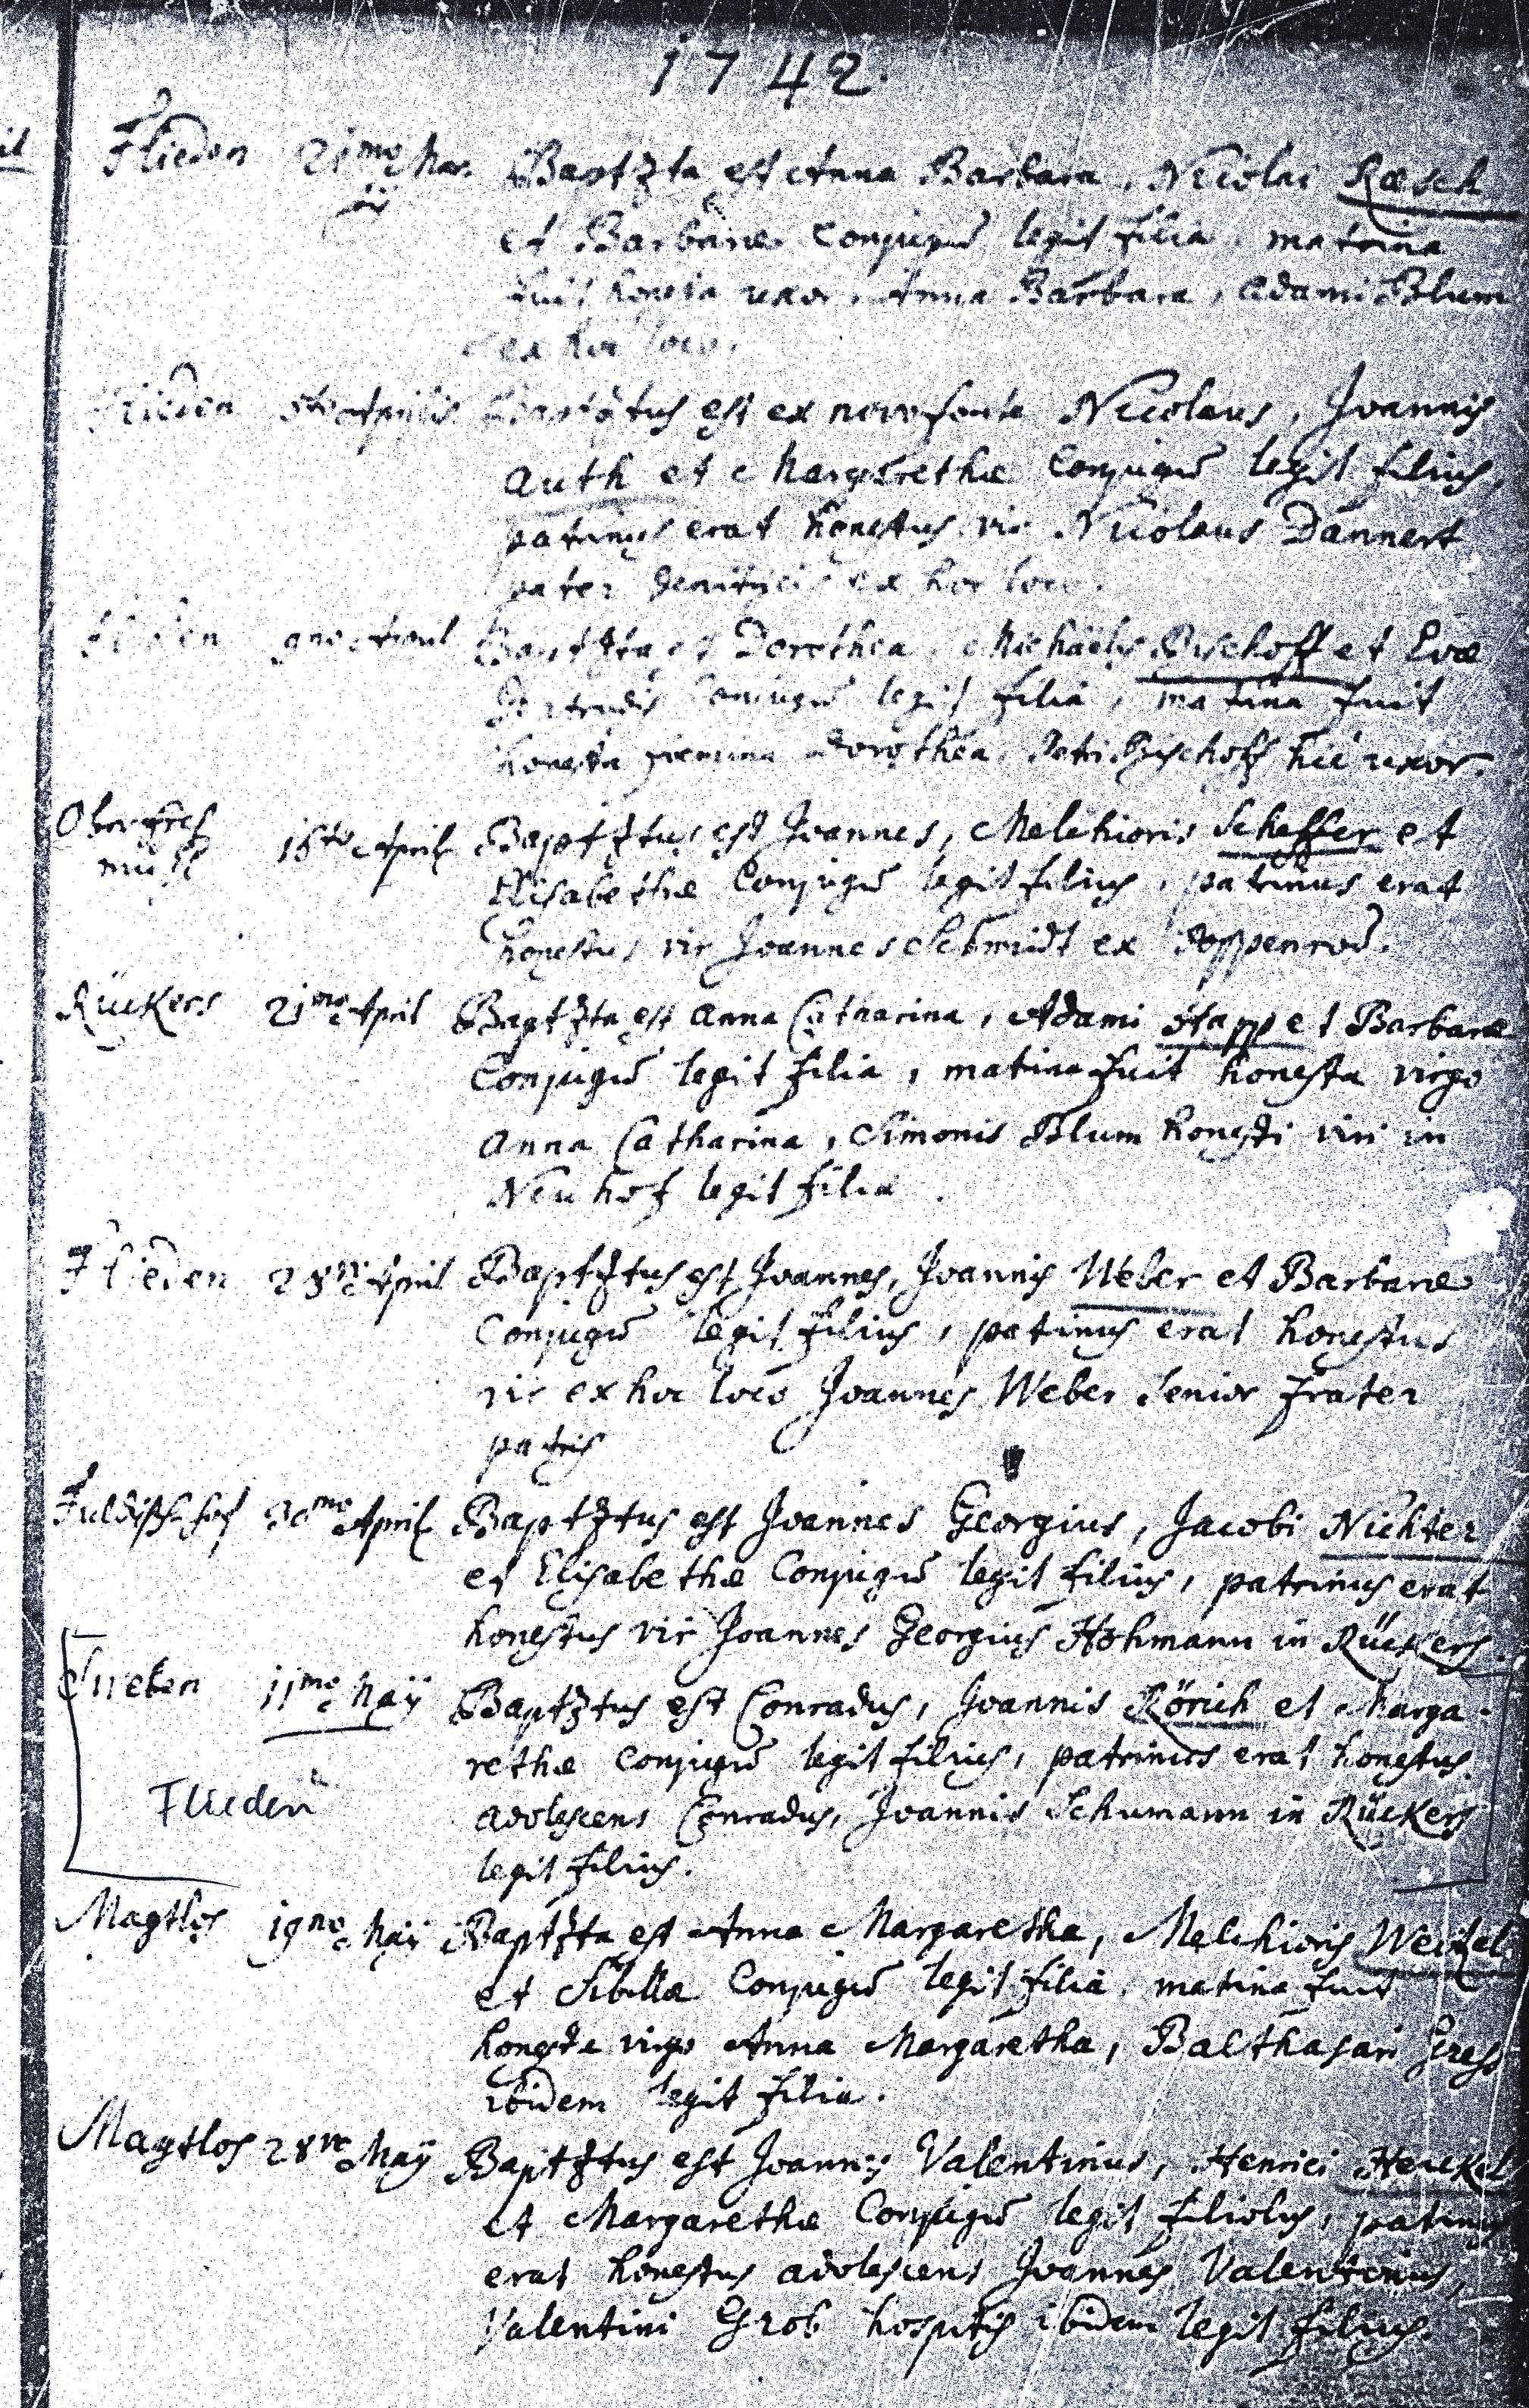 1742.
Flieden 21mo Mar. Baptzta est Anna Barbara, Nicolai Rœsch
tij et Barbaræ Conjugū legit filia, matrina
fuit honesta uxor, Anna Barbara, Adami Blum
ex hoc loco.
Flieden 5to Aprilis est ex novo fonte Nicolaus, Joannis
Auth et Margarethæ Conjugū legit filius,
patrinus erat honestus vir Nicolaus Dannert
pater ex hoc loco.
Flieden 9no April Baptzta est Dorothea, Michaëlis Bischoff et Evæ
Gertrudis Conjugū legit filia, matina fuit
honesta fœmina Dorothea, Petri Bischoff hic uxor.
April Baptztus est Joannes, Melchioris Scheffer et
Elisabethæ Conjugū legit filius, patrinus erat
honestus vir Joannes Schmidt ex
Rückers 21mo April Baptzta est Anna Catharina, Adami Stapp et Barbaræ
Conjugū legit filia, matina fuit honesta virgo
Anna Catharina, Simonis Blum honesti viri in
Neuhof legit filia.
Flieden 28vo April Baptztus est Joannes, Joannis Weber et Barbaræ
Conjugū legit filius, patinus erat honestus
vir ex hoc loco Joannes Weber Senior frater
patris
April Baptztus est Joannes Georgius, Jacobi Nichter
et Elisabethæ Conjugū legit filius, patrinus erat
honestus vir Joannes Georgius Hohmann in Rückers.
11mo Maÿ Baptztus est Conradus, Joannis Rörich et Marga-
rethæ Conjugū legit filius, patrinus erat honestus
Flieden adolescens Conradus, Joannis Schumann in Rückers
legit filius.
Magtlos 19no Maÿ Baptzta est Anna Margaretha, Melchioris Weitzel
et Sibillæ Conjugū legit filia, matina fuit
honesta virgo Anna Margaretha, Balthasari
ibidem legit filia.
Magtlos 28vo Maÿ Baptztus est Joannes Valentinus, Henrici Henckel
et Margarethæ Conjugū legit filiolus, patinus
erat honestus adolescens Joannes Valentinus,
Valentini Grob hospitis ibidem legit filius.